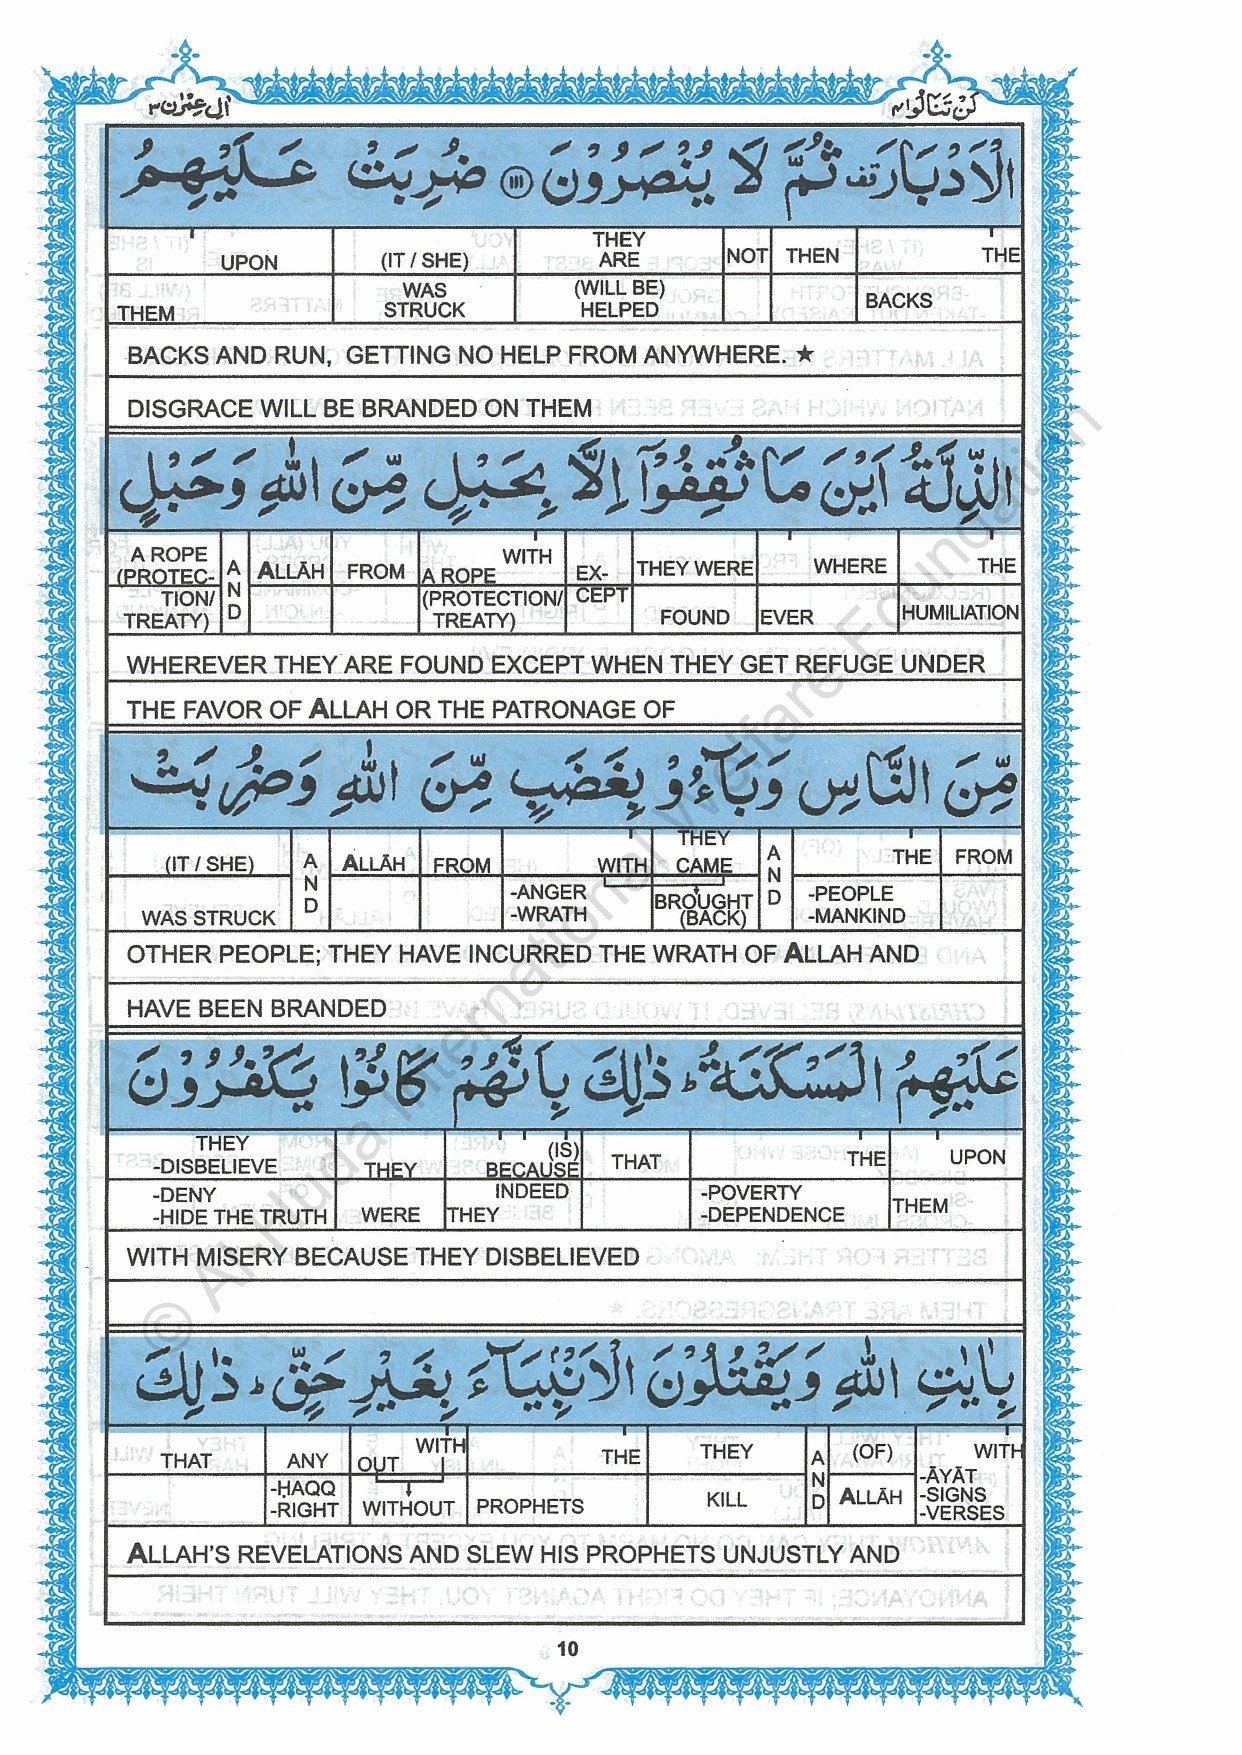 اٰل عِمْرٰن ٣
لَنْ تَنَالُوا ٤
الْاَدْبَارَ قف ثُمَّ لَا يُنْصَرُوْنَ ١١١ ضُرِبَتْ عَلَيْهِمُ
UPON (IT / SHE) THEY ARE NOT THEN THE
THEM WAS STRUCK (WILL BE) HELPED BACKS
BACKS AND RUN, GETTING NO HELP FROM ANYWHERE. ★
DISGRACE WILL BE BRANDED ON THEM
الذِّلَّةُ اَيْنَ مَا ثُقِفُوْٓا اِلَّا بِحَبْلٍ مِّنَ اللّٰهِ وَحَبْلٍ
A ROPE (PROTECTION/ TREATY) AND ALLĀH FROM WITH A ROPE (PROTECTION/ TREATY) EX-CEPT THEY WERE FOUND WHERE EVER THE HUMILIATION
WHEREVER THEY ARE FOUND EXCEPT WHEN THEY GET REFUGE UNDER
THE FAVOR OF ALLAH OR THE PATRONAGE OF
مِّنَ النَّاسِ وَبَآءُوْ بِغَضَبٍ مِّنَ اللّٰهِ وَضُرِبَتْ
(IT / SHE) WAS STRUCK AND ALLĀH FROM WITH -ANGER -WRATH THEY CAME BROUGHT (BACK) AND THE -PEOPLE -MANKIND FROM
OTHER PEOPLE; THEY HAVE INCURRED THE WRATH OF ALLAH AND
HAVE BEEN BRANDED
عَلَيْهِمُ الْمَسْكَنَةُ ط ذٰلِكَ بِاَنَّهُمْ كَانُوْا يَكْفُرُوْنَ
THEY -DISBELIEVE -DENY -HIDE THE TRUTH THEY WERE (IS) BECAUSE INDEED THEY THAT THE -POVERTY -DEPENDENCE UPON THEM
WITH MISERY BECAUSE THEY DISBELIEVED
بِاٰيٰتِ اللّٰهِ وَيَقْتُلُوْنَ الْاَنْۢبِيَآءَ بِغَيْرِ حَقٍّ ط ذٰلِكَ
THAT ANY -ḤAQQ -RIGHT WITH OUT WITHOUT THE PROPHETS THEY KILL AND (OF) ALLĀH WITH -ĀYĀT -SIGNS -VERSES
ALLAH'S REVELATIONS AND SLEW HIS PROPHETS UNJUSTLY AND
10
© Al-Huda International Welfare Foundation